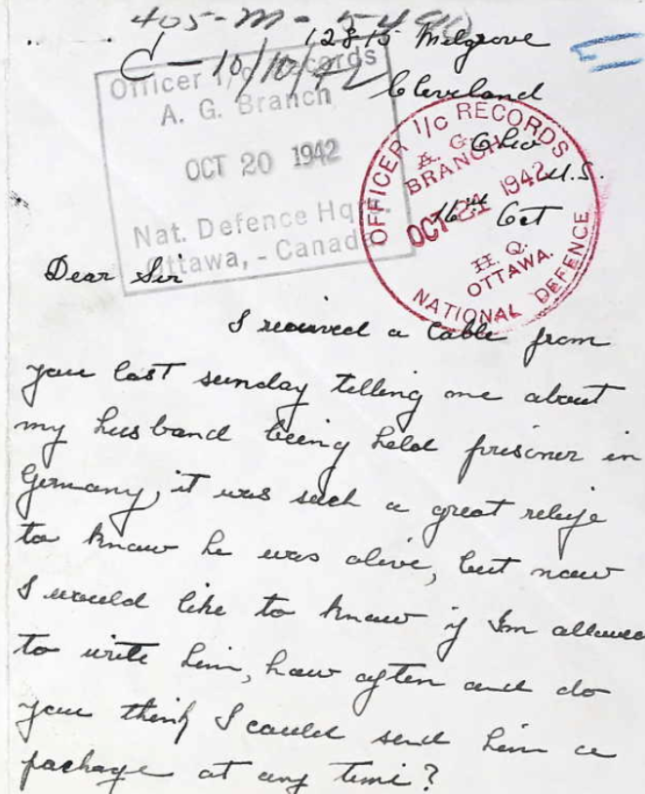 405-M-
12815 Melgrove
C-10/10/42
Cleveland
Officer I/c Records
A. G. Branch
OCT 20 1942
Nat. Defence Hqrs.
Ottawa, - Canada
OFFICER I/C RECORDS
A. G.
BRANCH
OCT 21 1942
H. Q.
OTTAWA.
NATIONAL DEFENCE
Ohio U.S.
16th Oct
Dear Sir
I received a Cable from
you last sunday telling me about
my husband being held prisoner in
Germany, it was such a great relife
to know he was alive, but now
I would like to know if Im allowed
to write him, how often and do
you think I could send him a
package at any time?